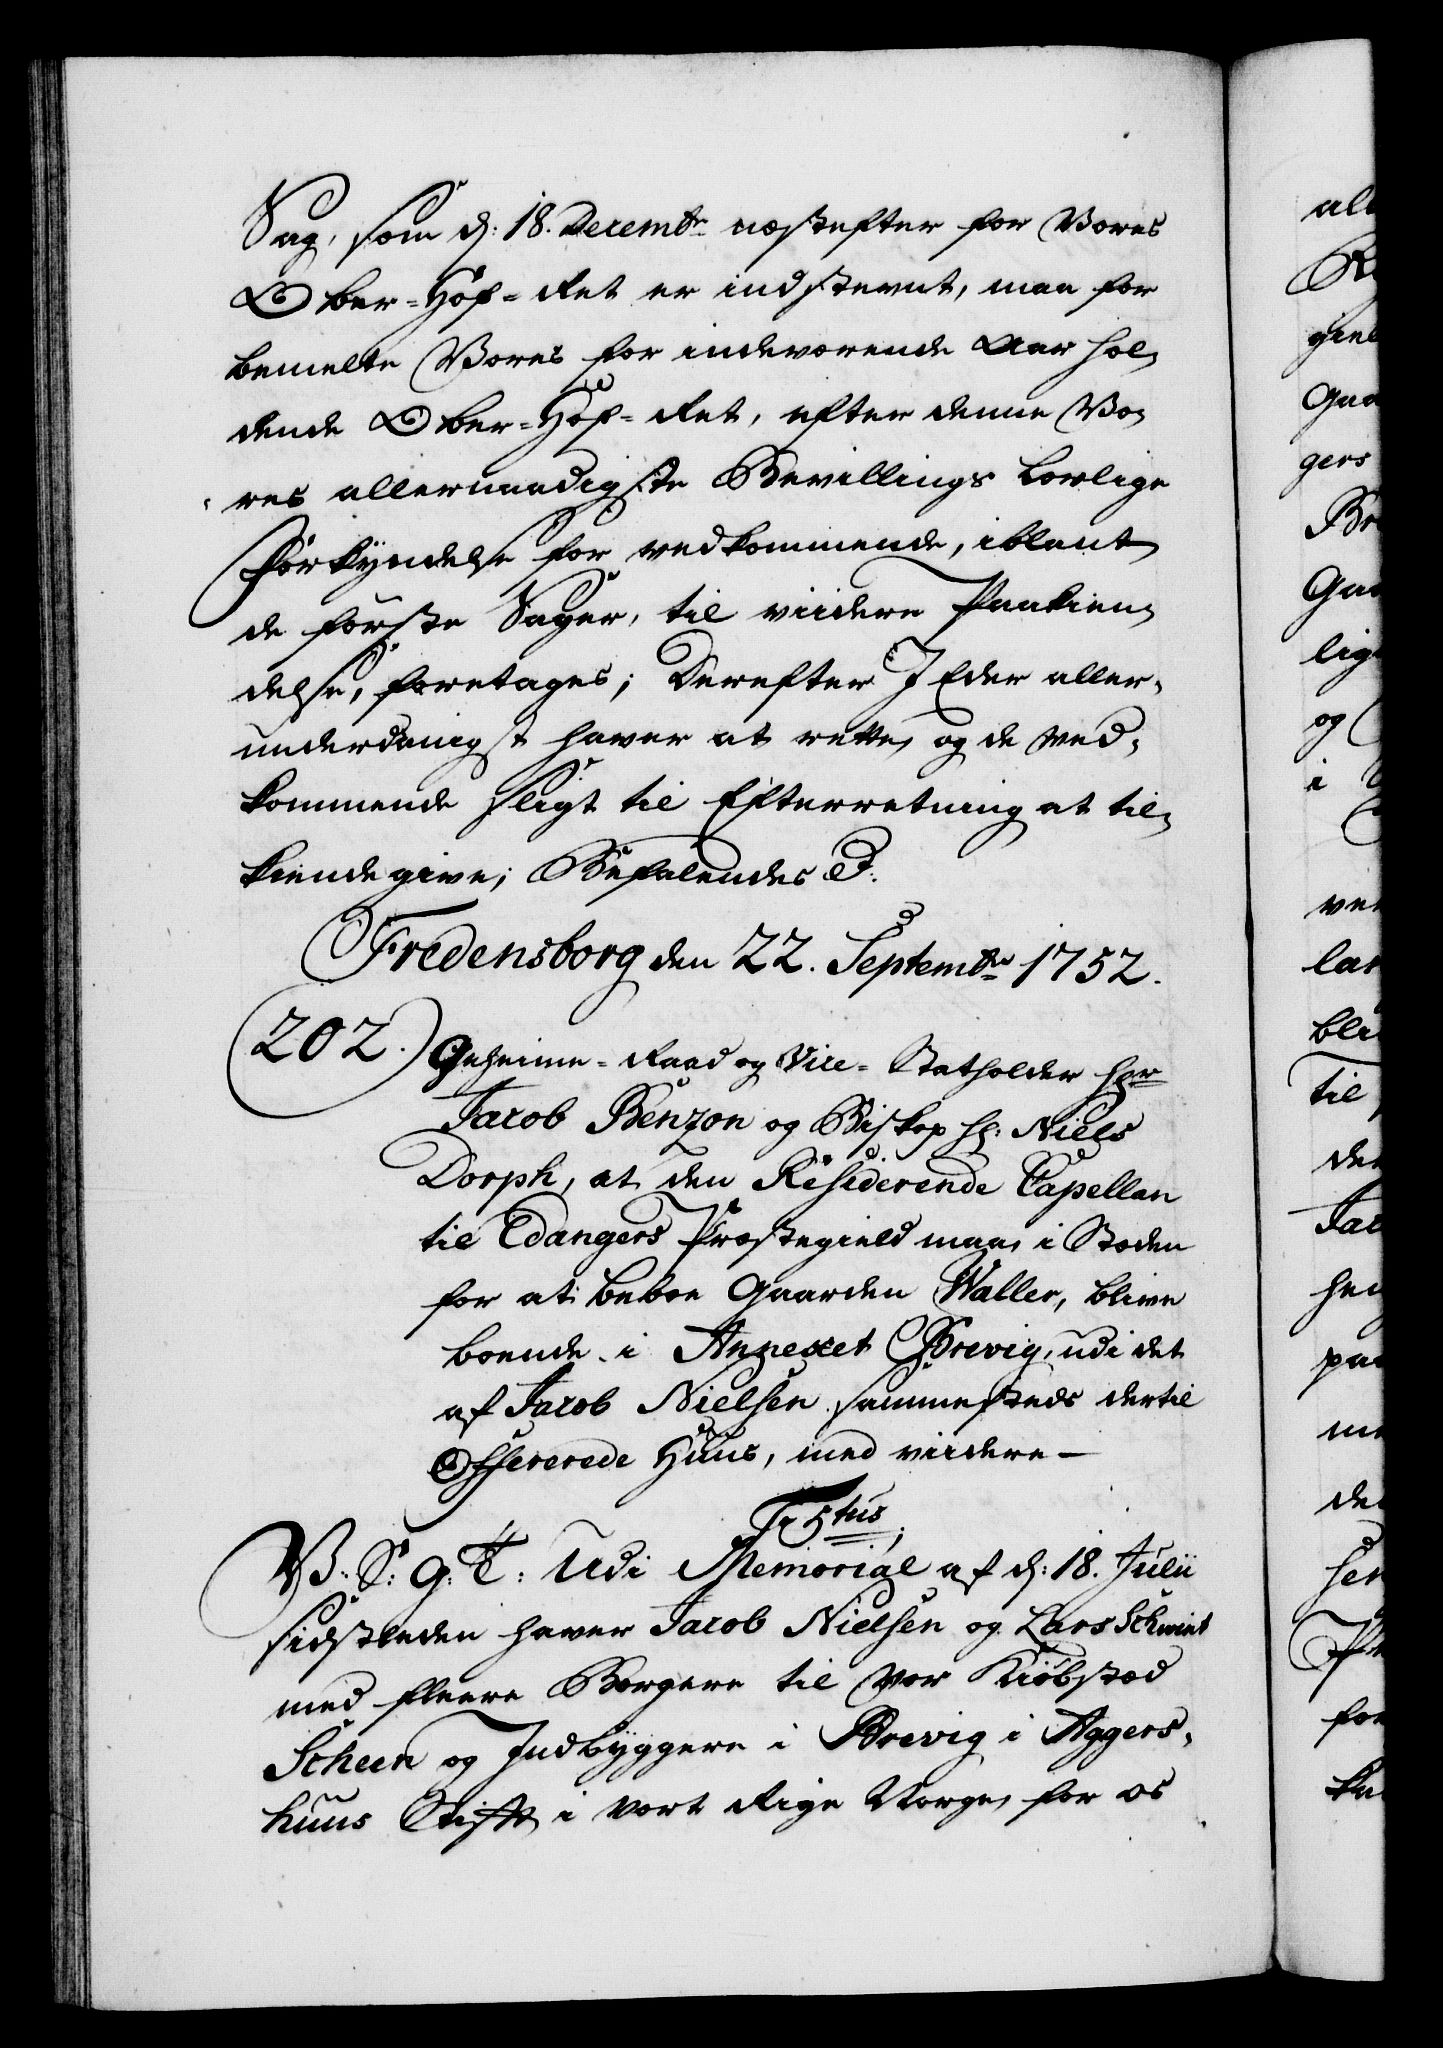 Sag, som d: 18. Decembr næstefter for Vores
Ober-Hof-Ret er indstevnt, maa for
bemelte Vores for indeværende Aar hol,
dende Ober-Hof-Ret, efter denne Vo,
res allernaadigste Bevillings lovlige
Forkyndelse for vedkommende, iblant
de første Sager, til viidere Paakien,
delse, foretages; Derefter I Eder aller,
underdanigst haver at rette, og de ved,
kommende sligt til Efterretning at til,
kiendegive; Befalendes &:
Fredensborg den 22. Septembr 1752.
202. Geheime-Raad og Vice-Statholder Hr
Jacob Benzon og Biskop Hr: Niels
Dorph, at den Residerende Capellan
til Edangers Præstegield maa, i Stæden
for at beboe Gaarden Waller, blive
boende i Annexet Brevig, udi det
af Jacob Nielsen sammesteds dertil
Offererede Huus, med viidere —
Fr 5tus,
V: S: G: T: Udi Memorial af d: 18. Julii
sidstleden haver Jacob Nielsen og Lars Schmidt
med fleere Borgere til vor Kiøbstæd
Scheen og Indbyggere i Brevig i Aggers,
huus Stift i vort Rige Norge, for os